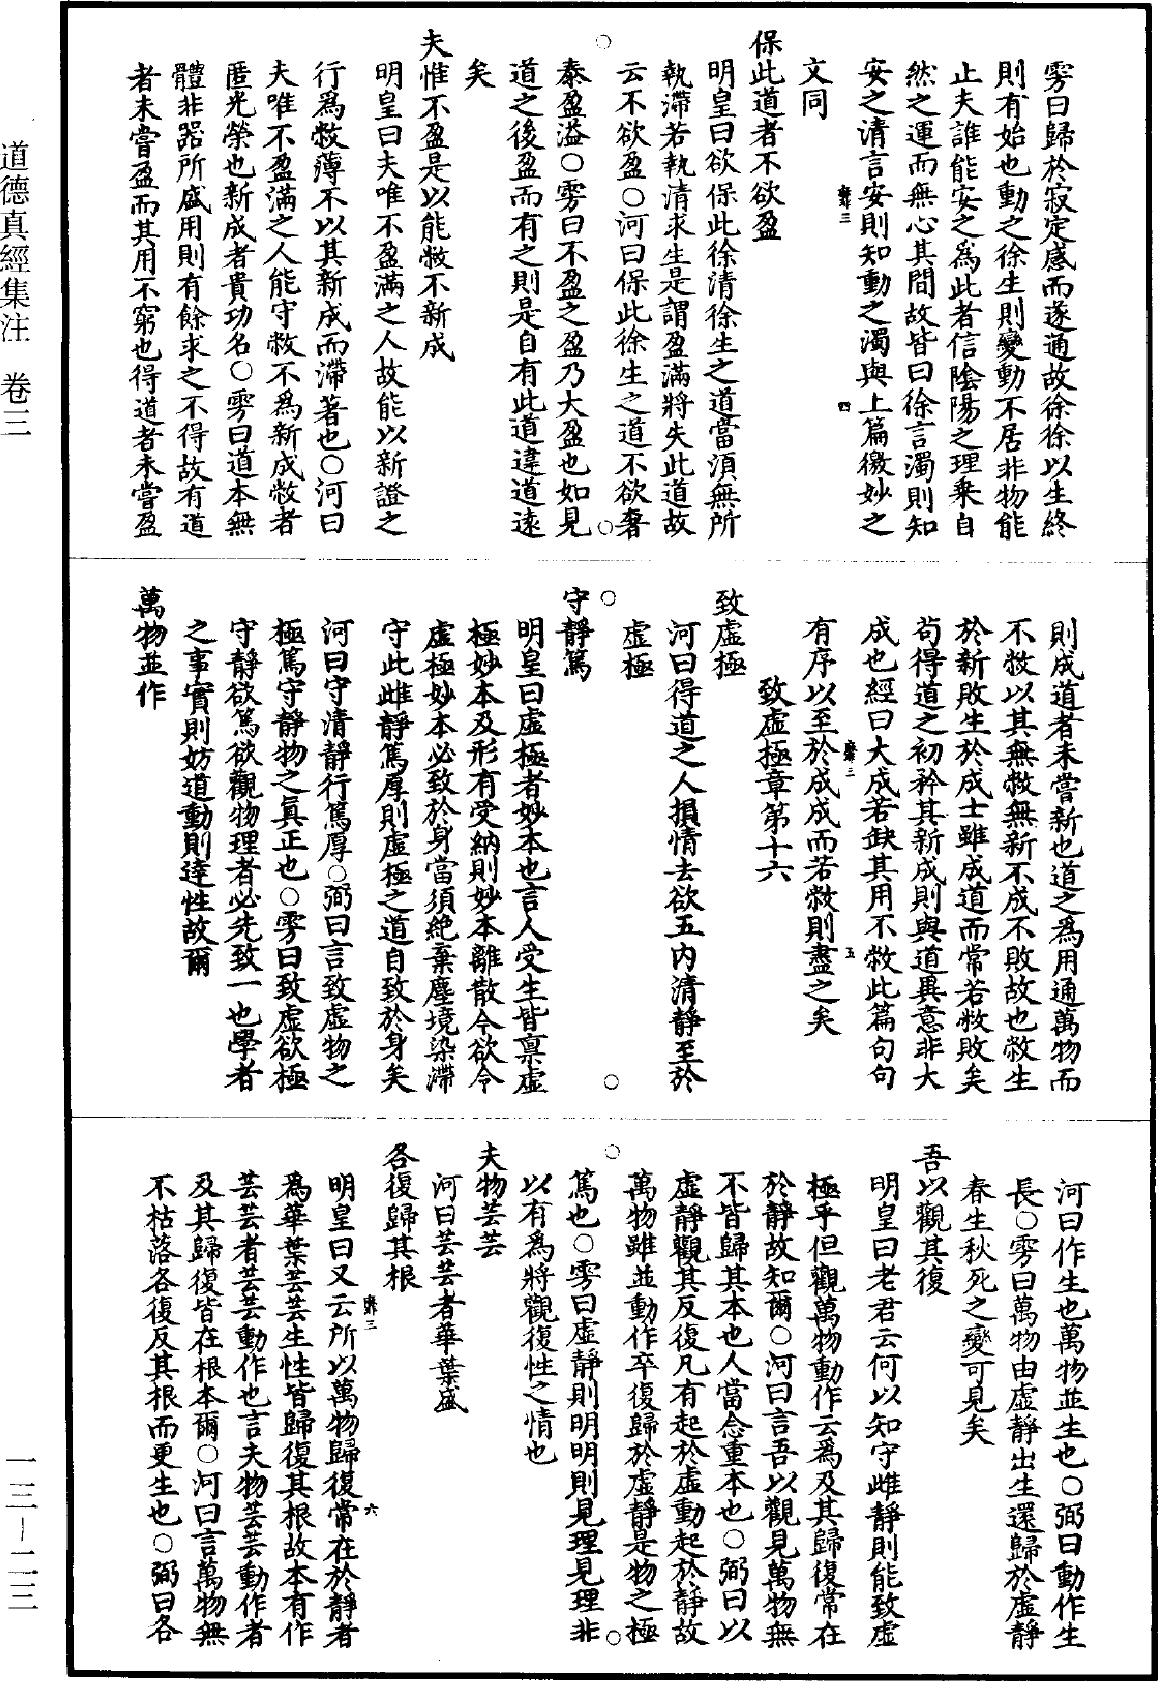 道德真經集注　卷三
雱曰歸於寂定感而遂通故徐徐以生終
則有始也動之徐生則變動不居非物能
止夫誰能安之爲此者信陰陽之理乘自
然之運而無心其間故皆曰徐言濁則知
安之清言安則知動之濁與上篇徼妙之
文同
保此道者不欲盈
明皇曰欲保此徐清徐生之道當須無所
執滯若執清求生是謂盈滿將失此道故
云不欲盈○河曰保此徐生之道不欲奢
泰盈溢○雱曰不盈之盈乃大盈也如見
道之後盈而有之則是自有此道違道遠
矣
夫惟不盈是以能敝不新成
明皇曰夫唯不盈滿之人故能以新證之
行爲敝薄不以其新成而滯著也○河曰
夫唯不盈滿之人能守敝不爲新成敝者
匿光榮也新成者貴功名○雱曰道本無
體非器所盛用則有餘求之不得故有道
者未嘗盈而其用不窮也得道者未嘗盈
則成道者未嘗新也道之爲用通萬物而
不敝以其無敝無新不成不敗故也敝生
於新敗生於成士雖成道而常若敝敗矣
苟得道之初矜其新成則與道異意非大
成也經曰大成若缺其用不敝此篇句句
有序以至於成成而若敝則盡之矣
致虛極章第十六
致虛極
河曰得道之人損情去欲五內清靜至於
虛極
守靜篤
明皇曰虛極者妙本也言人受生皆稟虛
極妙本及形有受納則妙本離散今欲令
虛極妙本必致於身當須絶棄塵境染滯
守此雌靜篤厚則虛極之道自致於身矣
河曰守清靜行篤厚○弼曰言致虛物之
極篤守靜物之眞正也○雱曰致虛欲極
守靜欲篤欲觀物理者必先致一也學者
之事實則妨道動則違性故爾
萬物並作
河曰作生也萬物並生也○弼曰動作生
長○雱曰萬物由虛靜出生還歸於虛靜
春生秋死之變可見矣
吾以觀其復
明皇曰老君云何以知守雌靜則能致虛
極乎但觀萬物動作云爲及其歸復常在
於靜故知爾○河曰言吾以觀見萬物無
不皆歸其本也人當念重本也○弼曰以
虛靜觀其反復凡有起於虛動起於靜故
萬物雖並動作卒復歸於虛靜是物之極
篤也○雱曰虛靜則明明則見理見理非
以有爲將觀復性之情也
夫物芸芸
河曰芸芸者華葉盛
各復歸其根
明皇曰又云所以萬物歸復常在於靜者
爲華葉芸芸生性皆歸復其根故本有作
芸芸者芸芸動作也言夫物芸芸動作者
及其歸復皆在根本爾○河曰言萬物無
不枯落各復反其根而更生也○弼曰各
一三－二三